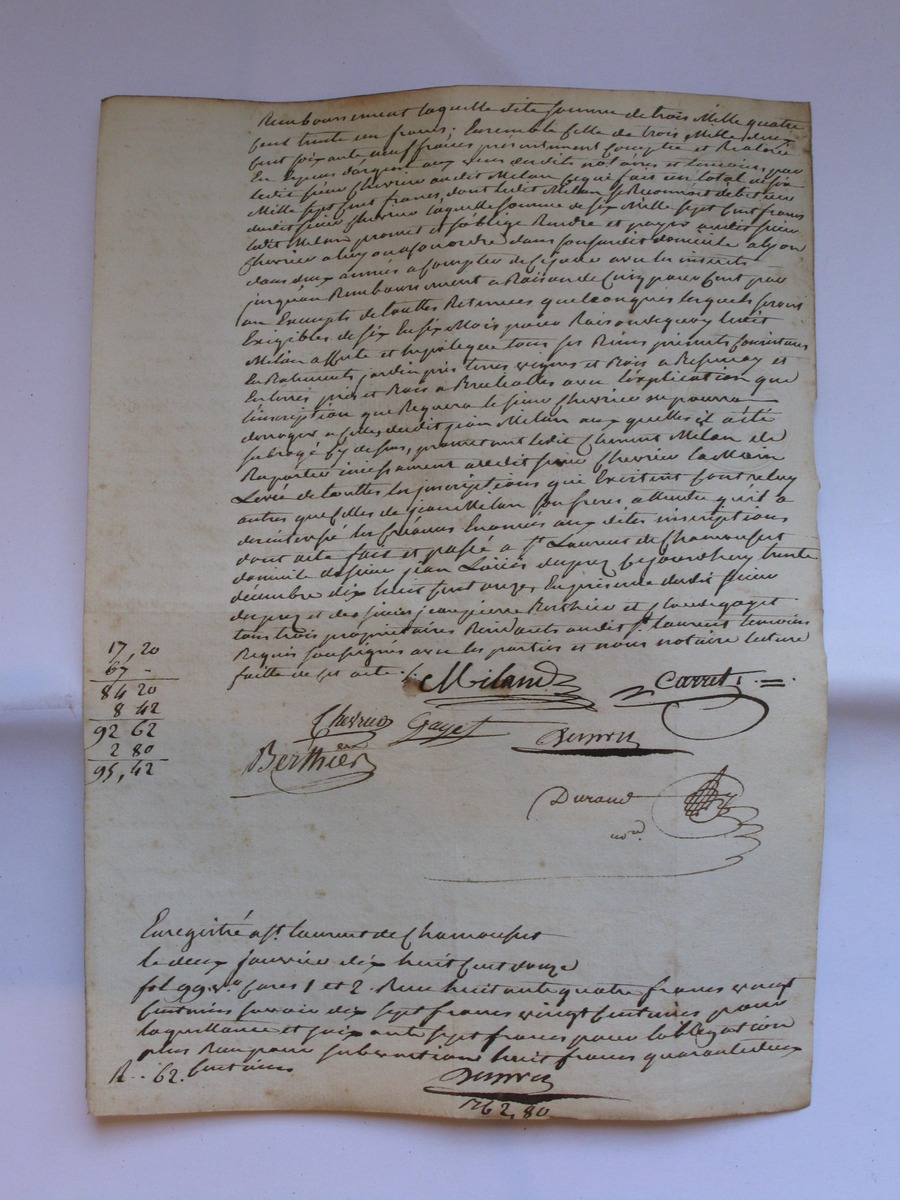 Remboursement laquelle dite somme de trois Mille quatre
cent trente un francs; Ensemble celle de trois Mille deux
cent soixante neuf francs presentement Comptée et Realisée
En Especes d'argent aux vues desdits notaires et temoins, par
ledit sieur chevrier audit Milan ce qui fait un total de six
Mille sept cent francs, dont ledit Milan se Reconnoit débiteur
dudit sieur chevrier laquelle somme de six Mille sept cent francs
ledit Milan promet et s'oblige Rendre et payer audit sieur
chevrier a lyon a son ordre dans son susdit domicile a lyon
dans deux années a compter de ce jour avec les interets
jusqu'au Remboursement a Raison de Cinq pour cent par
an Exempts de touttes Retenues quelconques lesquels seront
Exigibles de six En six Mois pour Raison de quoy ledit
Milan affecte et hypotéque tous ses Biens presents consistans
En Batiments jardin prés terres vignes et Bois a
En terres prés et Bois a Brulioles avec l'explication que
l'inscription que Requera le sieur chevrier ne pourra
deroger a celles dudit jean Milan aux quelles il a été
subrogé cy dessus, promettant ledit Clement Milan de
Rapporter incessament audit sieur chevrier la Main
Levée de touttes les inscriptions qui Existent contre luy
autres que celles de jean Milan son frere attendu qu'il a
desinteressé les créances Enoncées aux dites inscriptions
dont acte fait et passé a st. Laurent de Chamousset
domicile de sieur jean Louis dupré cejourdhuy trente
décembre dix huit cent onze, En présence dudit sieur
dupré et des sieurs jean pierre Berthier et claude gayet
tous trois propriétaires Residants audit st. laurent temoins
Requis soussignés avec les parties et nous notaire lecture
faitte de ces acte./.
17, 20
67 -
84 20
8 42
92 62
2 80
95, 42
Miland Carret
Chevrier Gayet
Berthier
Durand
nore.
Enregistré a st. laurent de Chamousset
le deux janvier dix huit cent douze
fol 99 vo. cases 1 et 2. Reçu huitante quatre francs vingt
centimes savoir dix sept francs vingt centimes pour
la quittance et soixante sept francs pour l'obligation
plus Reçu pour subvention huit francs quarante deux
centimes
R.. 62.